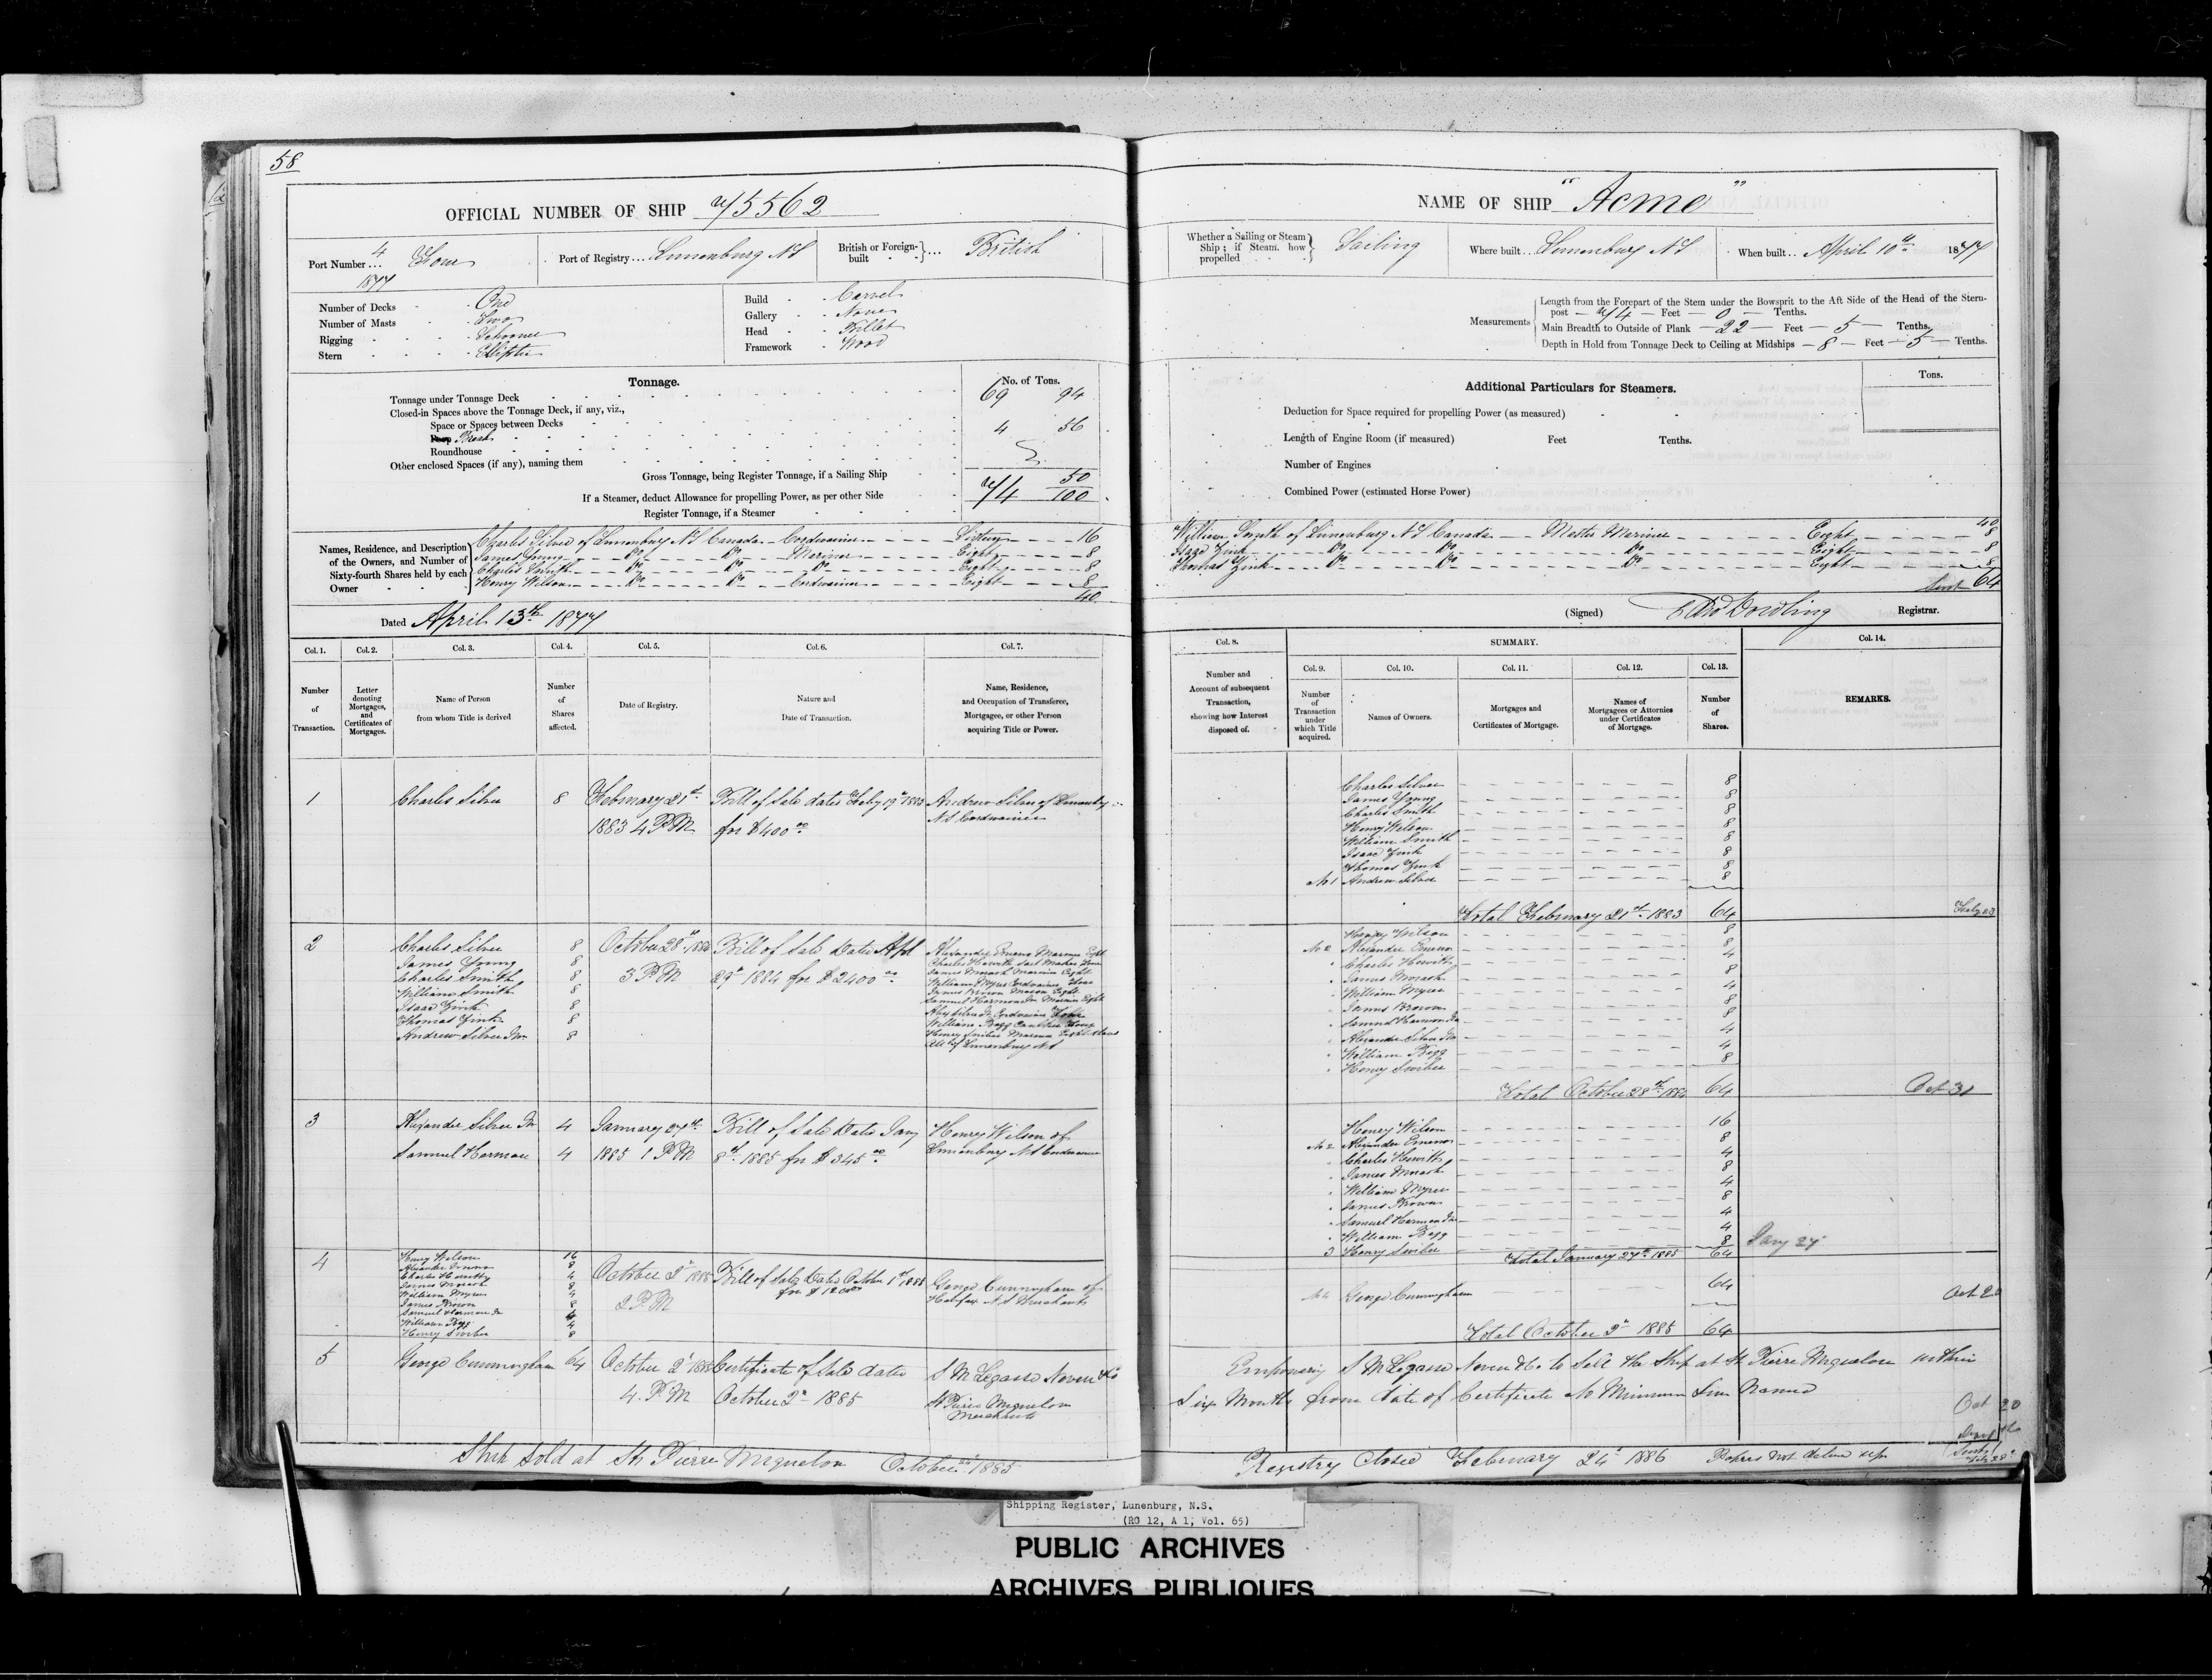 58
OFFICIAL NUMBER OF SHIP 75562
Port Number 4 Four 1877
Port of Registry... Lunenburg NS
British or Foreign-built }... British
Number of Decks One
Number of Masts Two
Rigging Schooner
Stern Elliptic
Build Carvel
Gallery None
Head Billet
Framework Wood
Tonnage. No. of Tons.
Tonnage under Tonnage Deck 69 94
Closed-in Spaces above the Tonnage Deck, if any, viz.,
Space or Spaces between Decks
Poop Break 4 56
Roundhouse
Other enclosed Spaces (if any), naming them
Gross Tonnage, being Register Tonnage, if a Sailing Ship 74 50/100
If a Steamer, deduct Allowance for propelling Power, as per other Side
Register Tonnage, if a Steamer
Names, Residence, and Description of the Owners, and Number of Sixty-fourth Shares held by each Owner
Charles Silver of Lunenburg NS Canada Cordwainer Sixteen 16
James Young Do Do Mariner Eight 8
Charles Smith Do Do Do Eight 8
Henry Wilson Do Do Cordwainer Eight 8
40
Dated April 13th 1877
Col. 1. Col. 2. Col. 3. Col. 4. Col. 5. Col. 6. Col. 7.
Number of Transaction.
Letter denoting Mortgages, and Certificates of Mortgages.
Name of Person from whom Title is derived
Number of Shares affected.
Date of Registry.
Nature and Date of Transaction.
Name, Residence, and Occupation of Transferee, Mortgagee, or other Person acquiring Title or Power.
1 Charles Silver 8 February 21st Bill of Sale dated Feby 19th 1883 Andrew Silver of Lunenburg
1883 4 PM for $400.00 NS Cordwainer
2 Charles Silver 8 October 28th 1884 Bill of Sale Dated Apl
James Young 8 3 PM 29th 1884 for $2400.00
Charles Smith 8
William Smith 8
Isaac Zink 8
Thomas Zink 8
Andrew Silver Jnr 8
Alexander Emeno Mariner Eight
Charles Hewitt Sail Maker Four
James Morash Mariner Eight
William Myres Cordwainer Four
James Brown Mason Eight
Samuel Harmon Jnr Mariner Eight
Alex Silver Jr Cordwainer Four
William Begg Caulker Four
Henry Swiber Mariner Eight Shares
All of Lunenburg NS
3 Alexander Silver Jnr 4 January 27th Bill of Sale Dated Jany Henry Wilson of
Samuel Harman 4 1885 1 PM 8th 1885 for $345.00 Lunenburg NS Cordwainer
4 Henry Wilson 16
Alexander Emeno 8
Charles Hewitt 4
James Morash 8
William Myres 4
James Brown 8
Samuel Harman Jr 4
William Begg 4
Henry Swiber 8
October 2d 1885 Bill of Sale Dated October 1st 1885 George Cunningham of
2 PM for $1200.00 Halifax NS Merchant
5 George Cunningham 64 October 2d 1885 Certificate of Sale dated S M Legasse Neven & Co
4. PM October 2d 1885 St Pierre Miquelon
Merchants
Ship Sold at St Pierre Miquelon October 1885
NAME OF SHIP "Acme"
Whether a Sailing or Steam Ship; if Steam, how propelled } Sailing
Where built... Lunenburg NS
When built.. April 10th 1877
Measurements
Length from the Forepart of the Stem under the Bowsprit to the Aft Side of the Head of the Stern-
post 74 Feet 0 Tenths.
Main Breadth to Outside of Plank 22 Feet 5 Tenths.
Depth in Hold from Tonnage Deck to Ceiling at Midships 8 Feet 5 Tenths.
Additional Particulars for Steamers. Tons.
Deduction for Space required for propelling Power (as measured)
Length of Engine Room (if measured) Feet Tenths.
Number of Engines
Combined Power (estimated Horse Power)
40
William Smith of Lunenburg NS Canada Master Mariner Eight 8
Isaac Zink Do Do Do Eight 8
Thomas Zink Do Do Do Eight 8
64
(Signed) Dowling Registrar.
Col. 8. SUMMARY. Col. 14.
Col. 9. Col. 10. Col. 11. Col. 12. Col. 13.
Number and Account of subsequent Transaction, showing how Interest disposed of.
Number of Transaction under which Title acquired.
Names of Owners.
Mortgages and Certificates of Mortgage.
Names of Mortgagees or Attornies under Certificates of Mortgage.
Number of Shares.
REMARKS.
Charles Silver 8
James Young 8
Charles Smith 8
Henry Wilson 8
William Smith 8
Isaac Zink 8
Thomas Zink 8
No 1 Andrew Silver 8
Total February 21st 1883 64
Henry Wilson 8
No 2 Alexander Emeno 8
Charles Hewitt 4
James Morash 8
William Myres 4
James Brown 8
Samuel Harmon Jnr 8
Alexander Silver Jnr 4
William Begg 4
Henry Swiber 8
Total October 28th 1884 64 Oct 31
Henry Wilson 16
No 2 Alexander Emeno 8
Charles Hewitt 4
James Morash 8
William Myres 4
James Brown 8
Samuel Harmon Jnr 4
William Begg 4
3 Henry Swiber 8 Jany 27
Total January 27th 1885 64
No 4 George Cunningham 64 Oct 20
Total October 2d 1885 64
Empowering S M Legasse Neven & Co to Sell the Ship at St Pierre Miquelon within
Six Months from date of Certificate No Minimum Sum Named
Oct 20
Registry Closed February 24th 1886 Papers not delivd up
Shipping Register, Lunenburg, N.S.
(RG 12, A 1, Vol. 65)
PUBLIC ARCHIVES
ARCHIVES PUBLIQUES